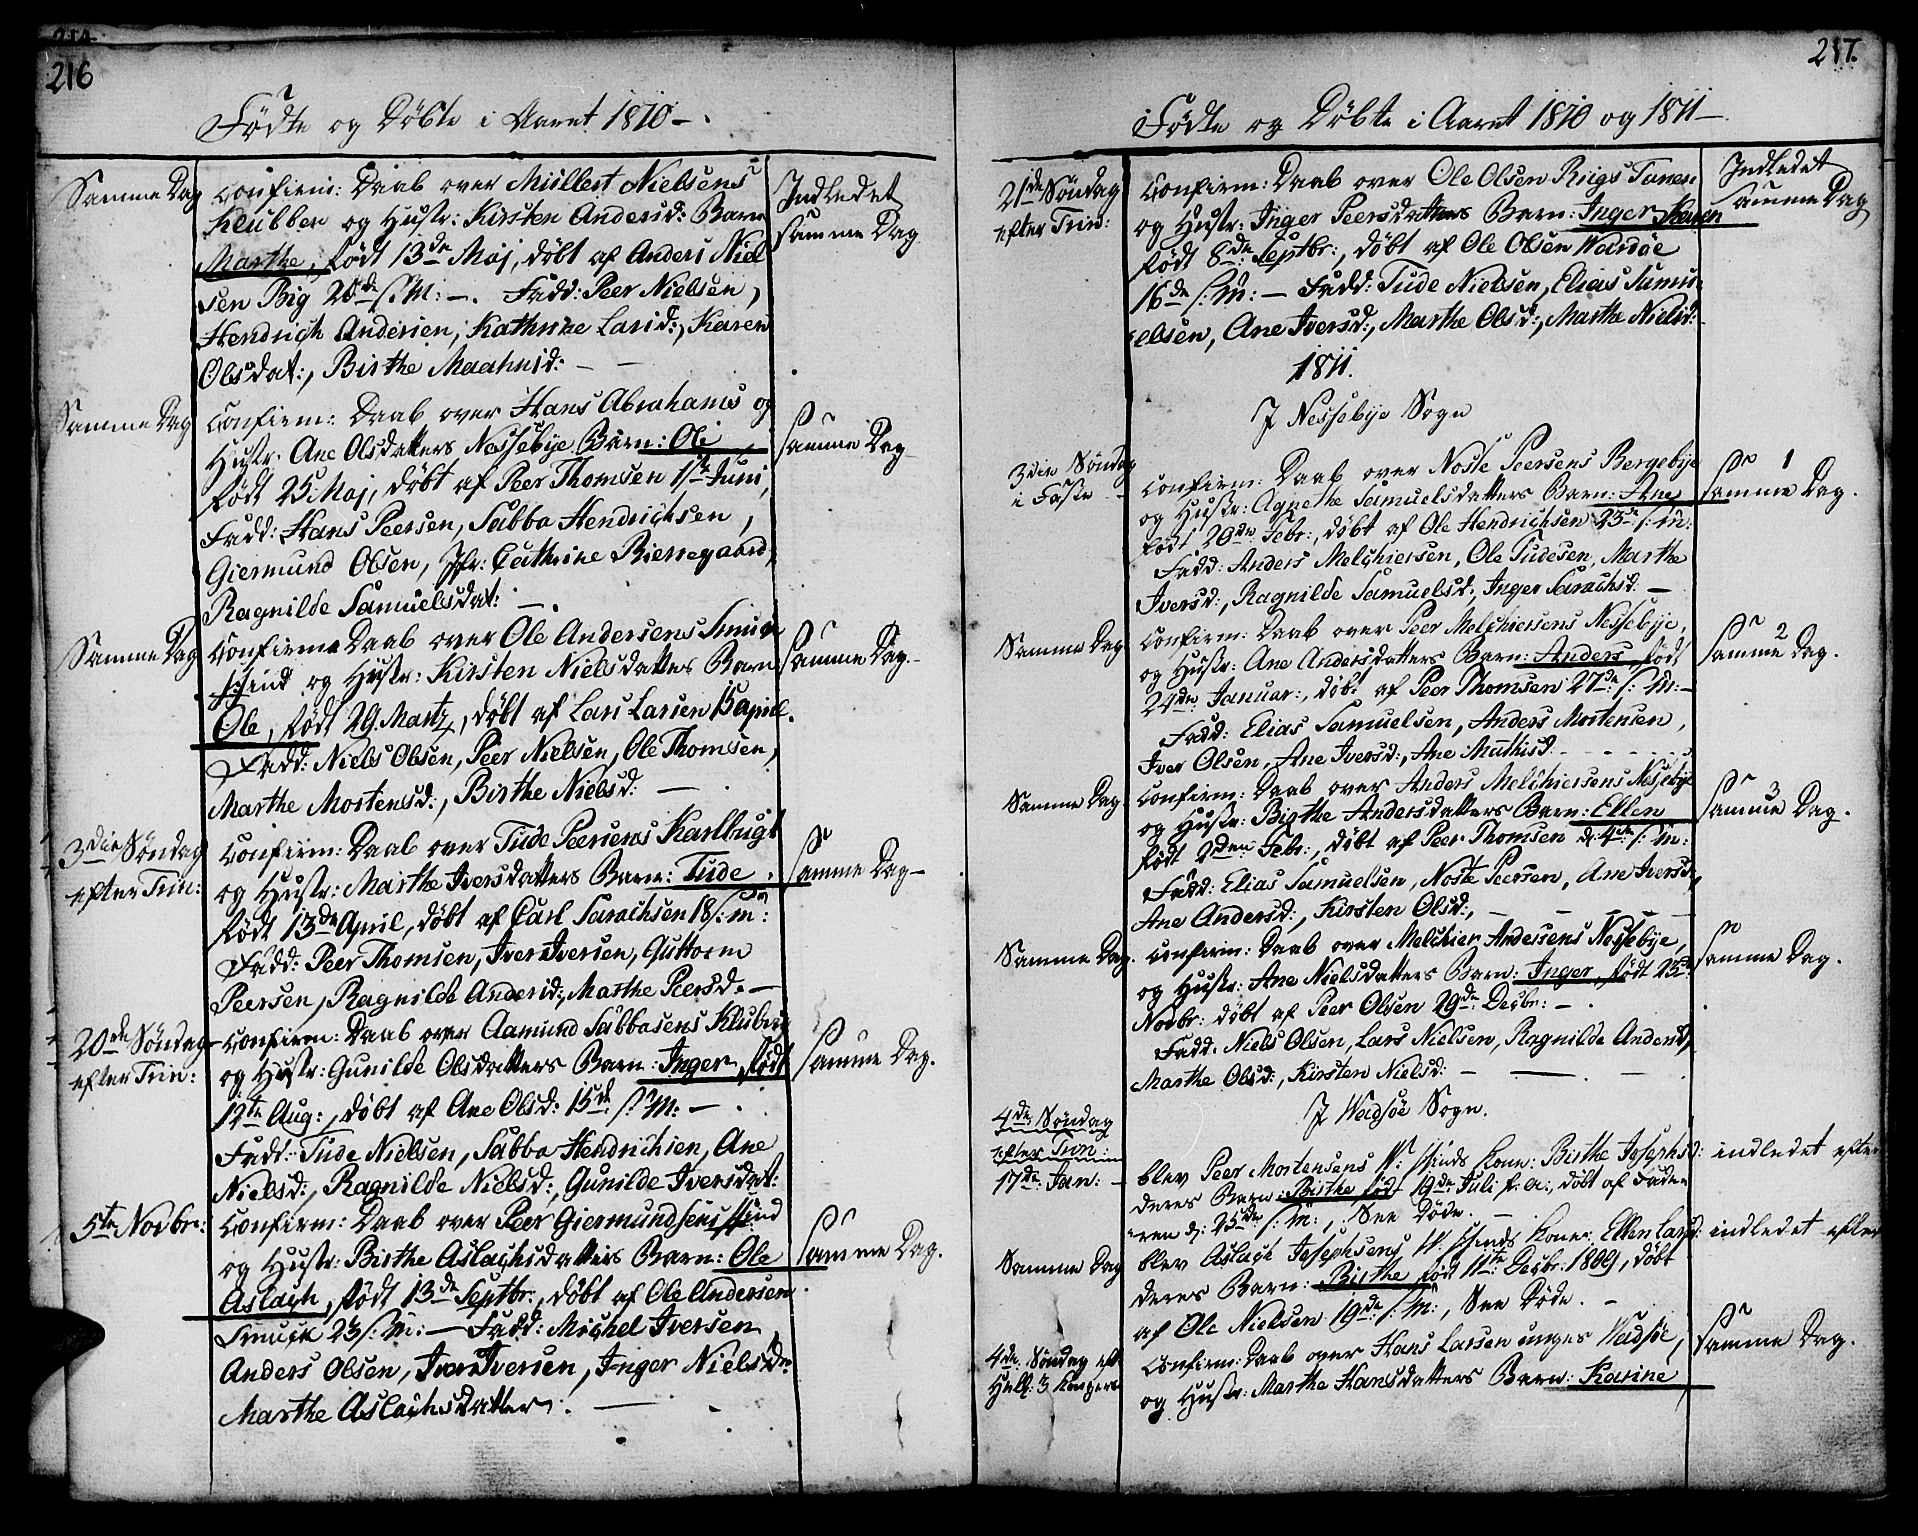 216
Fødte og Døbte i Aaret 1810 - .
Samme Dag
Confirm: Daab over Mullert Nielsens
Klubben og Hustr: Kirsten Andersd: Barn
Marthe, født 13de Maj, døbt af Anders Niel
sen Big 20de s: M: -. Fadd: Peer Nielsen,
Hendrich Andersen, Kathrine Larsd:, Karen
Olsdat:, Birthe Maahnsd: -
Indledet
samme Dag
Samme Dag
Confirm: Daab over Hans Abrahams og
Hustr: Ane Olsdatters Nessebye Barn: Ole
født 25 Maj, døbt af Peer Thomsen 1ste Juni,
Fadd: Hans Peersen, Sabba Hendrichsen,
Giermund Olsen, Jfr: Cathrine Bierregaard,
Ragnilde Samuelsdat: -.
Do
samme Dag
Samme Dag
Confirm: Daab over Ole Andersens Smuck
og Hustr: Kirsten Nielsdatters Barn
Ole, født 29. Martz, døbt af Lars Larsen 15 April.
Fadd: Niels Olsen, Peer Nielsen, Ole Thomsen,
Marthe Mortensd:, Birthe Nielsd: -
Do
samme Dag.
3die Søndag
efter Trin:
Confirm: Daab over Tude Peersens Karlbugt
og Hustr: Marthe Iversdatters Barn: Tude.
født 13de April, døbt af Carl Sarachsen 18 s: M:
Fadd: Peer Thomsen, Iver Iversen, Guttorm
Peersen, Ragnilde Andersd:, Marthe Peersd: -
Do
samme Dag -
20de Søndag
efter Trin:
Confirm: Daab over Aamund Sabbasens Klubben
og Hustr: Gunilde Olsdatters Barn: Inger, født
12te Aug:, døbt af Ane Olsd: 15de s: M: -.
Fadd: Tude Nielsen, Sabba Hendrichsen, Ane
Nielsd:, Ragnilde Nielsd:, Gunilde Iversdat:
Do
samme Dag.
5te Novbr:
Confirm: Daab over Peer Giermundsens
og Hustr: Birthe Aslachsdatters Barn: Ole
Aslach, født 13de Septbr:, døbt af Ole Andersen
Smuck 23 s: M: - Fadd: Michel Iversen
Anders Olsen, Iver Iversen, Inger Nielsd:
Marthe Aslachsdatter. -
Do
samme Dag.
217.
Fødte og Døbte i Aaret 1810 og 1811 -
21de Søndag
efter Trin:
Confirm: Daab over Ole Olsen Riigs Tanen
og Hustr: Inger Peersdatters Barn: Inger Karen
født 8de Septbr:, døbt af Ole Olsen Wardøe
16de s: M: - Fadd: Tude Nielsen, Elias Samu-
elsen, Ane Iversd:, Marthe Olsd:, Marthe Nielsd:
Indledet
samme Dag
1811.
I Nessebye Sogn
3die Søndag
i Faste -
Confirm: Daab over Noste Peersens Bergebye
og Hustr: Agnethe Samuelsdatters Barn: Ane
født 20de Febr:, døbt af Ole Hendrichsen 23de s: M:
Fadd: Anders Melchiersen, Ole Tudesen, Marthe
Iversd:, Ragnilde Samuelsd:, Inger Sarachsd: -
Do 1
samme Dag.
Samme Dag
Confirm: Daab over Peer Melchiersens Nessebye,
og Hustr: Ane Andersdatters Barn: Anders, født
24de Januar:, døbt af Peer Thomsen 27de s: M: -
Fadd: Elias Samuelsen, Anders Mortensen,
Iver Olsen, Ane Iversd:, Ane Mathisd:
Do 2
samme Dag.
Samme Dag.
Confirm: Daab over Anders Melchiersens Nessebye
og Hustr: Birthe Andersdatters Barn: Ellen
født 2den Febr:, døbt af Peer Thomsen d: 4de s: M:
Fadd: Elias Samuelsen, Noste Peersen, Ane Iversd:,
Ane Andersd:, Kirsten Olsd:, -
Do 3
samme Dag.
Samme Dag.
Confirm: Daab over Melchier Andersens Nessebye,
og Hustr: Ane Nielsdatters Barn: Inger, født 25de
Novbr: døbt af Peer Olsen 29de Decbr: -.
Fadd: Niels Olsen, Lars Nielsen, Ragnilde Andersd:,
Marthe Olsd:, Kirsten Nielsd: -
Do
samme Dag.
I Wadsøe Sogn.
4de Søndag
efter Trin:
17de Jan: -
blev Peer Mortensens Kone: Birthe Josephsd: indledet efter
deres Barn: Birthe, født 19de Juli f: a:, døbt af Fade-
ren d: 25de s: M:, See Døde. -
Samme Dag
blev Aslach Josephsens Kone: Ellen Larsd: indledet efter
deres Barn: Birthe født 11te Decbr: 1809, døbt
af Ole Nielsen 19de s: M:, See Døde. -
4de Søndag eft
Hell: 3 Konger
Confirm: Daab over Hans Larsen unges Wadsøe,
og Hustr: Marthe Hansdatters Barn: Karine
Do
samme Dag.